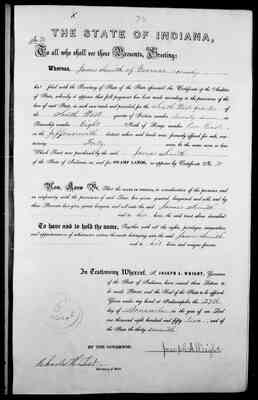 THE STATE OF INDIANA,
To all who shall see these Presents, Greeting:
Whereas, James Smith of County
has filed with the Secretary of State of the State aforesaid the Certificate of the Auditor
of State, whereby it appears that full payment has been made according to the provisions of the
law of said State, in such case made and provided for the South West quarter of
the South East quarter of Section number
Township number Eight North of Range number
in the Jeffersonville district within said tract formerly offered for sale, containing
Forty acres, be the same more or less
Which Tract was purchased by the said James Smith
of the State of Indiana, as and for SWAMP LANDS, as appears by Certificate No.
Now, Know Ye, That the STATE OF INDIANA, in consideration of the premises and
in conformity with the provisions of said Law, has given, granted, bargained and sold, and by
these Presents does give, grant, bargain, and sell unto the said James Smith
and to his heirs, the said tract above described
To have and to hold the same, Together with all the rights, privileges, immunities
and appurtenances of whatsoever nature thereunto belonging, unto the said James Smith
and to his heirs and assigns forever.
In Testimony Whereof, I, JOSEPH A. WRIGHT, Governor
of the State of Indiana, have caused these Letters to
be made Patent, and the Seal of the State to be affixed.
Given under my hand at Indianapolis, the 27th
day of November in the year of our Lord
one thousand eight hundred and fifty two, and of
the State the thirty seventh
BY THE GOVERNOR: Joseph A Wright
Charles H. Test
Secretary of State